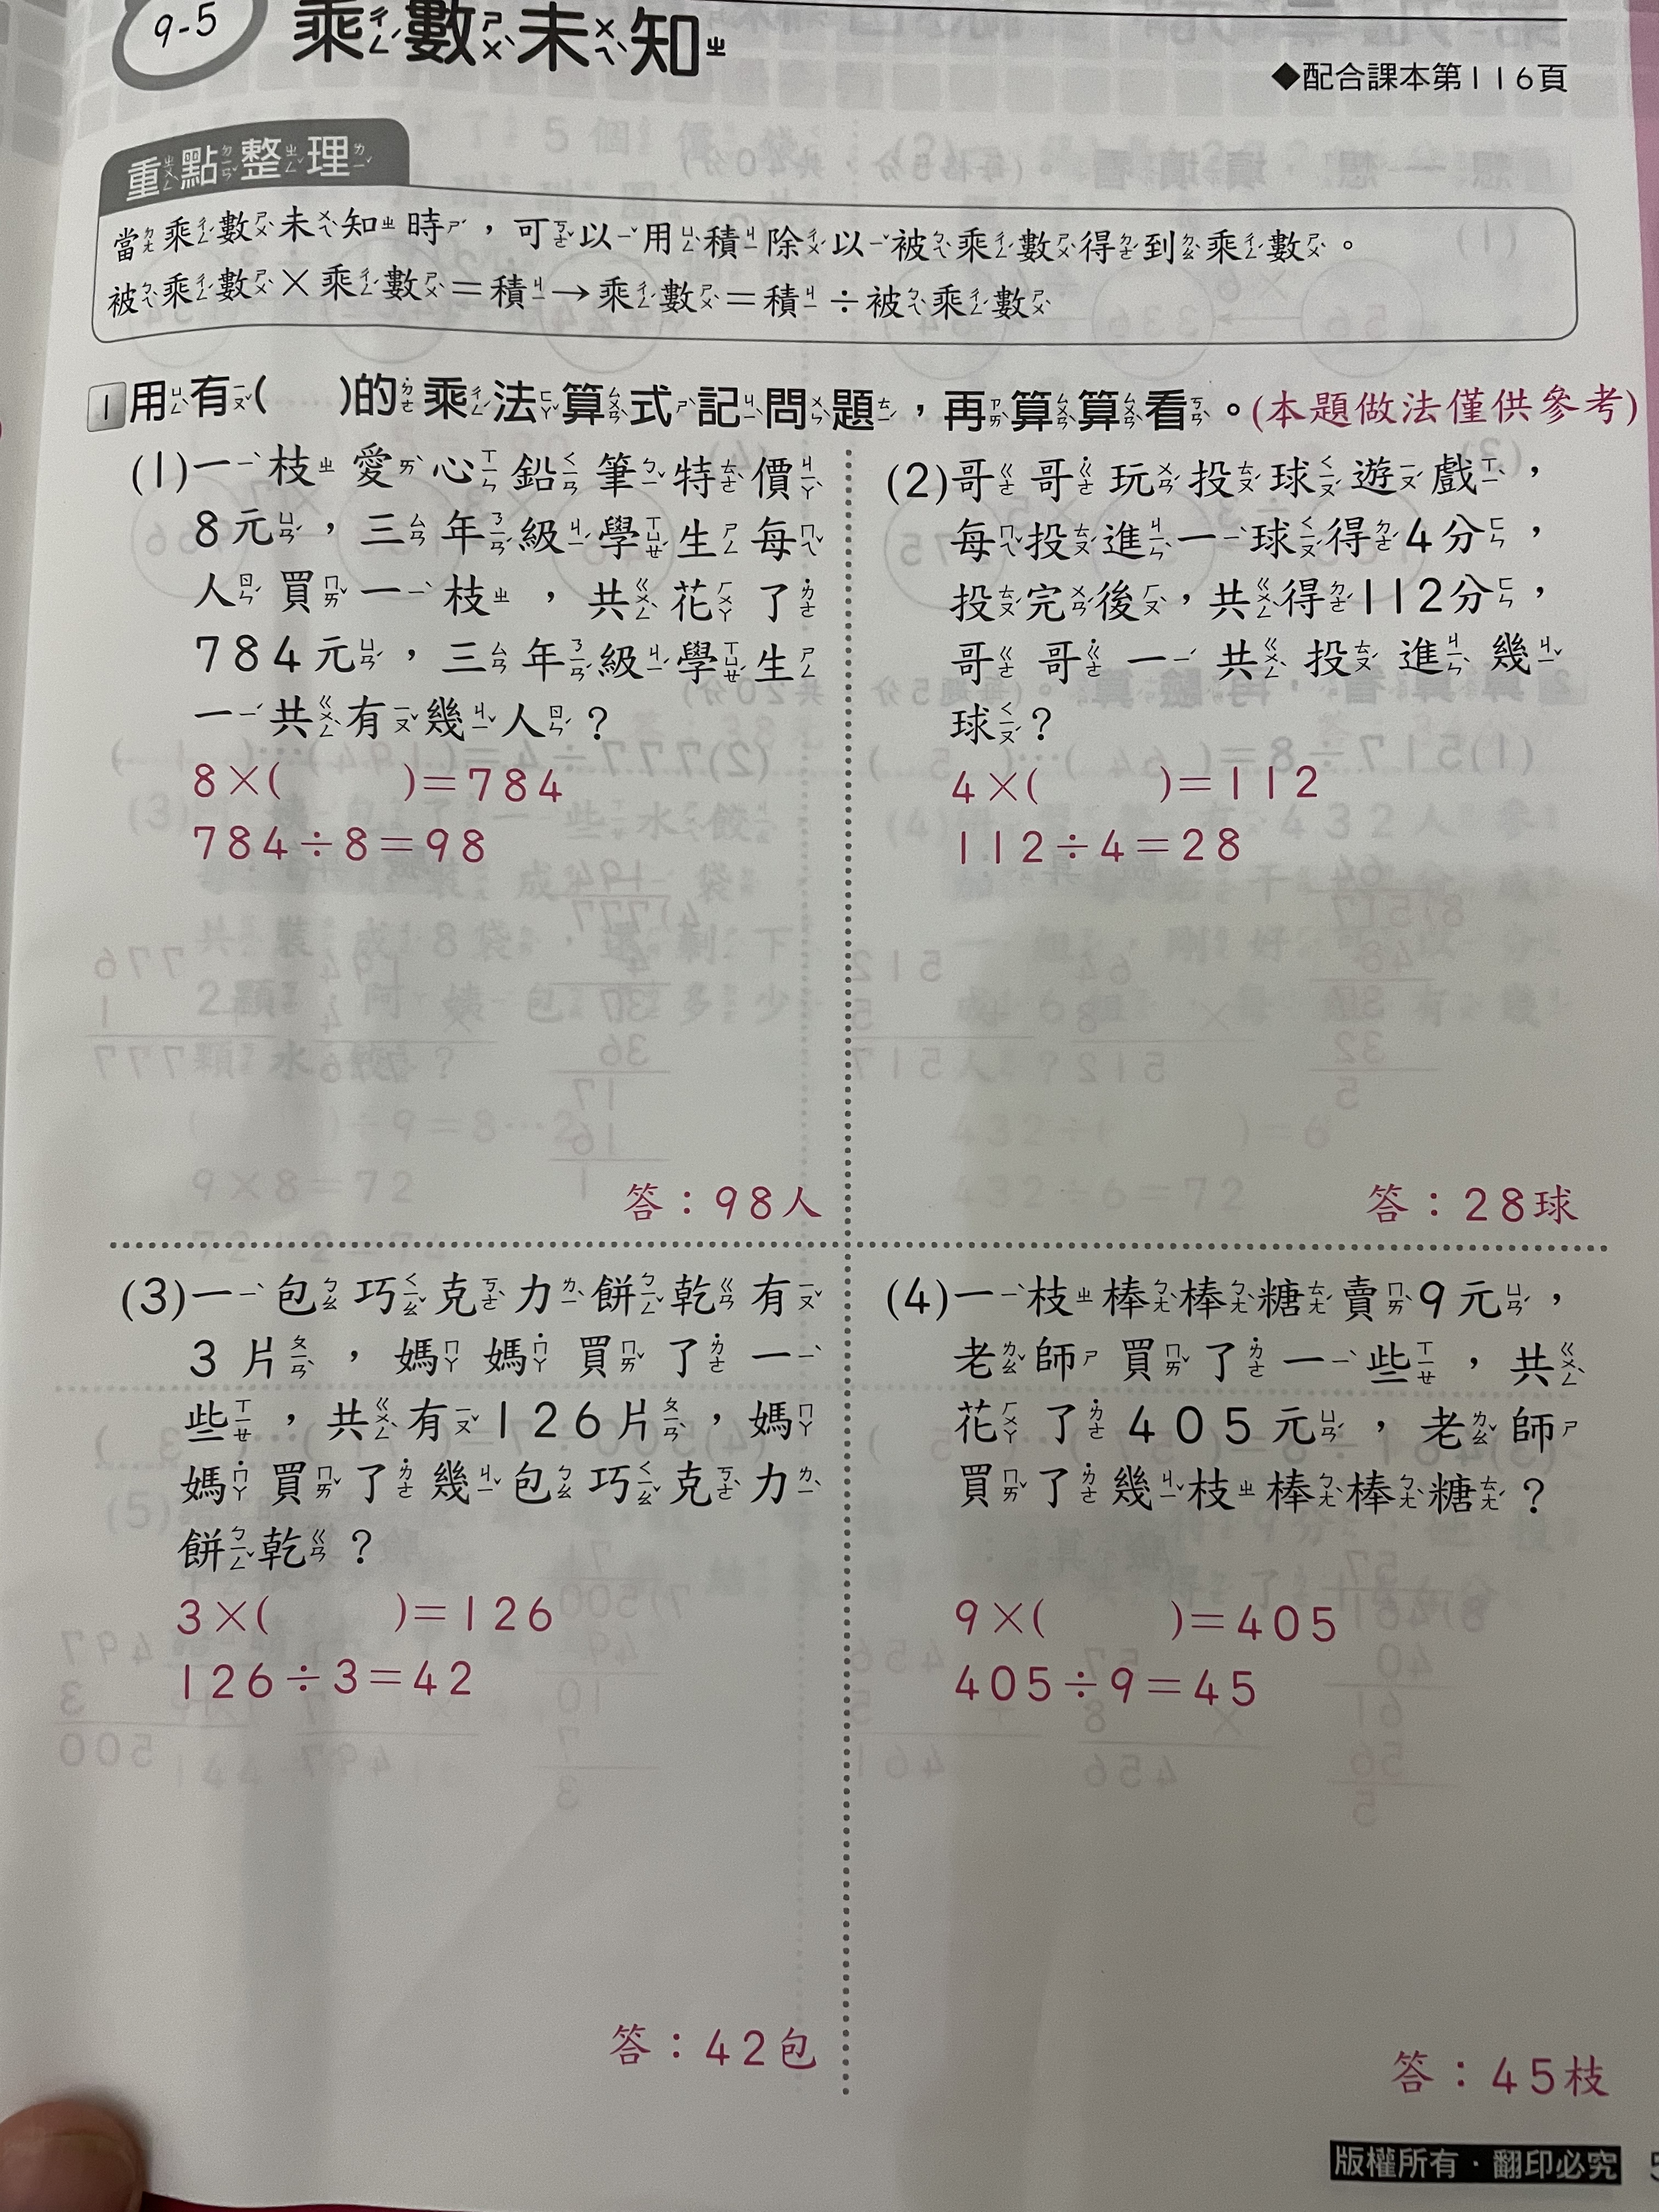 9-5 乘數未知
◆配合課本第116頁
重點整理
當乘數未知時，可以用積除以被乘數得到乘數。
被乘數×乘數＝積→乘數＝積÷被乘數
1 用有(　　)的乘法算式記問題，再算算看。(本題做法僅供參考)
(1)一枝愛心鉛筆特價
8元，三年級學生每
人買一枝，共花了
784元，三年級學生
一共有幾人？
8×(　　)＝784
784÷8＝98
答：98人
(2)哥哥玩投球遊戲，
每投進一球得4分，
投完後，共得112分，
哥哥一共投進幾
球？
4×(　　)＝112
112÷4＝28
答：28球
(3)一包巧克力餅乾有
3片，媽媽買了一
些，共有126片，媽
媽買了幾包巧克力
餅乾？
3×(　　)＝126
126÷3＝42
答：42包
(4)一枝棒棒糖賣9元，
老師買了一些，共
花了405元，老師
買了幾枝棒棒糖？
9×(　　)＝405
405÷9＝45
答：45枝
版權所有．翻印必究